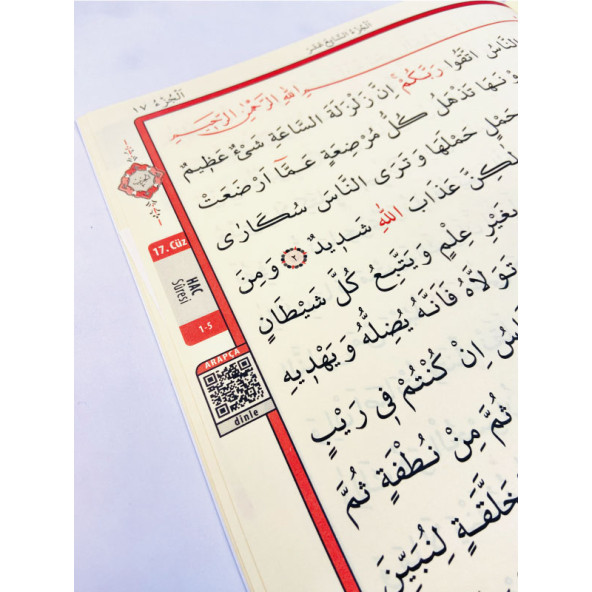 اَلْجُزْءُ السَّابِعُ عَشَرَ
اَلْجُزْءُ ١٧
اللهِ الرَّحْمٰنِ الرَّحِيمِ
النَّاسُ اتَّقُوا رَبَّكُمْ اِنَّ زَلْزَلَةَ السَّاعَةِ شَىْءٌ عَظِيمٌ
نَهَا تَذْهَلُ كُلُّ مُرْضِعَةٍ عَمَّا اَرْضَعَتْ
حَمْلٍ حَمْلَهَا وَتَرَى النَّاسَ سُكَارٰى
لٰكِنَّ عَذَابَ اللهِ شَدِيدٌ ٢ وَمِنَ
بِغَيْرِ عِلْمٍ وَيَتَّبِعُ كُلَّ شَيْطَانٍ
تَوَلَّاهُ فَاَنَّهُ يُضِلُّهُ وَيَهْدِيهِ
اِنْ كُنْتُمْ فِى رَيْبٍ
ثُمَّ مِنْ نُطْفَةٍ ثُمَّ
لِنُبَيِّنَ
17. Cüz
HAC
Sûresi
1-5
ARAPÇA
dinle